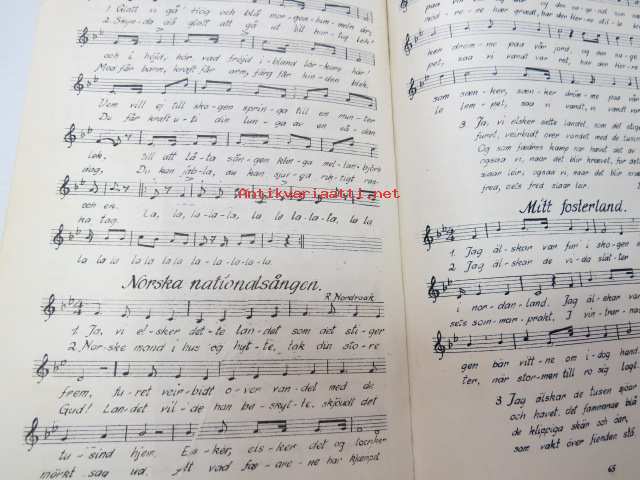 1 Glatt vi gå i skog och blå mor-gon-him-meln ler,
2 Skyn-da då glatt att gå ut bit hur-tig lek!
och i höjd, hör vad fröjd i-bland lär-kors här!
Mod får barm, kraft får arm, färg får kin-den blek.
Vem vill ej till sko-gen sprin-ga till en mun-ter
Du får kraft u-ti din lun-ga av en så-dan
lek. Till att lå-ta sån-gen klin-ga mel-lan björk
dag, Du kan jubb-la, du kan sjun-ga rik-tigt ran-
och en.
na tag. La, la, la-la-la, la la la la-la, la la
la la la la la la-la-la-la-la.
Norska nationalsången.
R. Nordraak
1. Ja, vi el-sker det-te lan-det som det sti-ger
2. Nor-ske mand i hus og hyt-te, tak din sto-re
frem, fu-ret veir-bidt o-ver van-det med de
Gud! Lan-det vil-de han be-skyt-te, skjöndt det
tu-sind hjem. El-sker, el-sker det og
mörkt saa ud. Alt vad fæ-dre-ne har kjæmpet
ken dröm-me paa vår jord, og den
pet, saa vi vandt vor ret,
som sæn-ker, sæn-ker dröm-me paa
le lem-pet, saa vi vandt, vi vandt vor
3 Ja, vi elsker dette landet, som det stiger
furet, veirbidt over vandet med de tusen
Og som fædres kamp har hævet det av
ogsaa vi, naar det blir krævet, for dets
slaar leir, ogsaa vi, naar det blir
fred, dets fred slaar leir.
Mitt fosterland.
1. Jag äl-skar var fur i sko-gen
2. Jag äl-skar de vi-da slät-ter
i nor-dan-land. Jag äl-skar var
sets som-mar-prakt, I vin-trar-na
gen bär vitt-ne om i-dog hand.
ter, när stor-men till ro sig lagt.
3 Jag älskar de tusen sjöar
och havet det famnande blå
de klippiga skär och öar,
som vakt över fienden stå.
65
Antikvariaatti.net